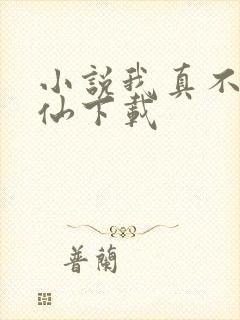 小說我真不
仙下載
普蘭